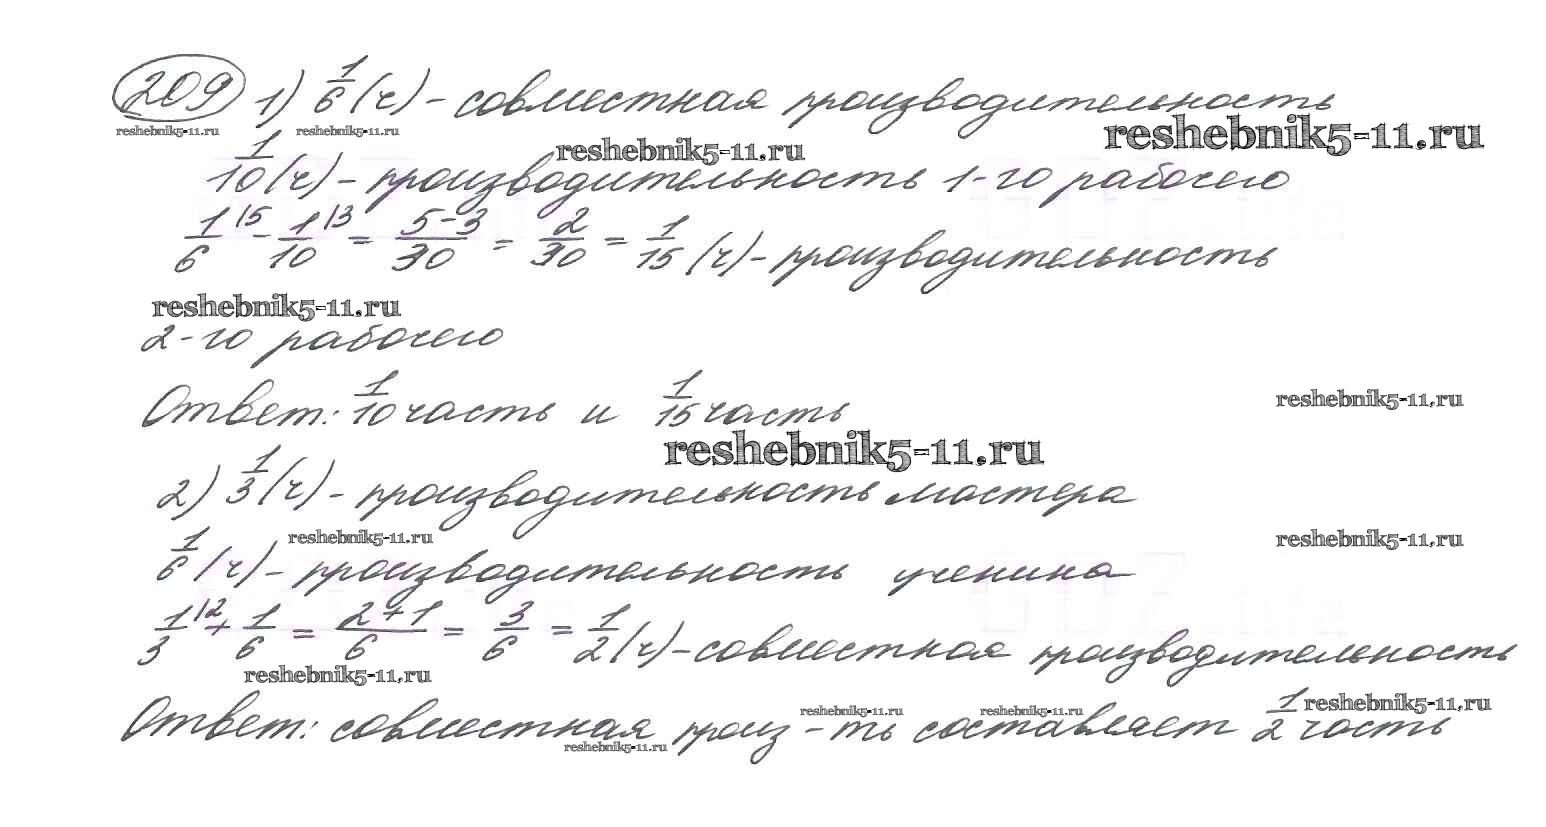 209 1) 1/6 (ч) - совместная производительность
reshebnik5-11.ru reshebnik5-11.ru reshebnik5-11.ru
reshebnik5-11.ru
1/10 (ч) - производительность 1-го рабочего
1/6 |5 - 1/10 |3 = 5-3/30 = 2/30 = 1/15 (ч) - производительность
reshebnik5-11.ru
2-го рабочего
Ответ: 1/10 часть и 1/15 часть
reshebnik5-11.ru
reshebnik5-11.ru
2) 1/3 (ч) - производительность мастера
reshebnik5-11.ru reshebnik5-11.ru
1/6 (ч) - производительность ученика
1/3 |2 + 1/6 = 2+1/6 = 3/6 = 1/2 (ч) - совместная производительность
reshebnik5-11.ru
reshebnik5-11.ru reshebnik5-11.ru reshebnik5-11.ru
Ответ: совместная произ-ть составляет 1/2 часть
reshebnik5-11.ru